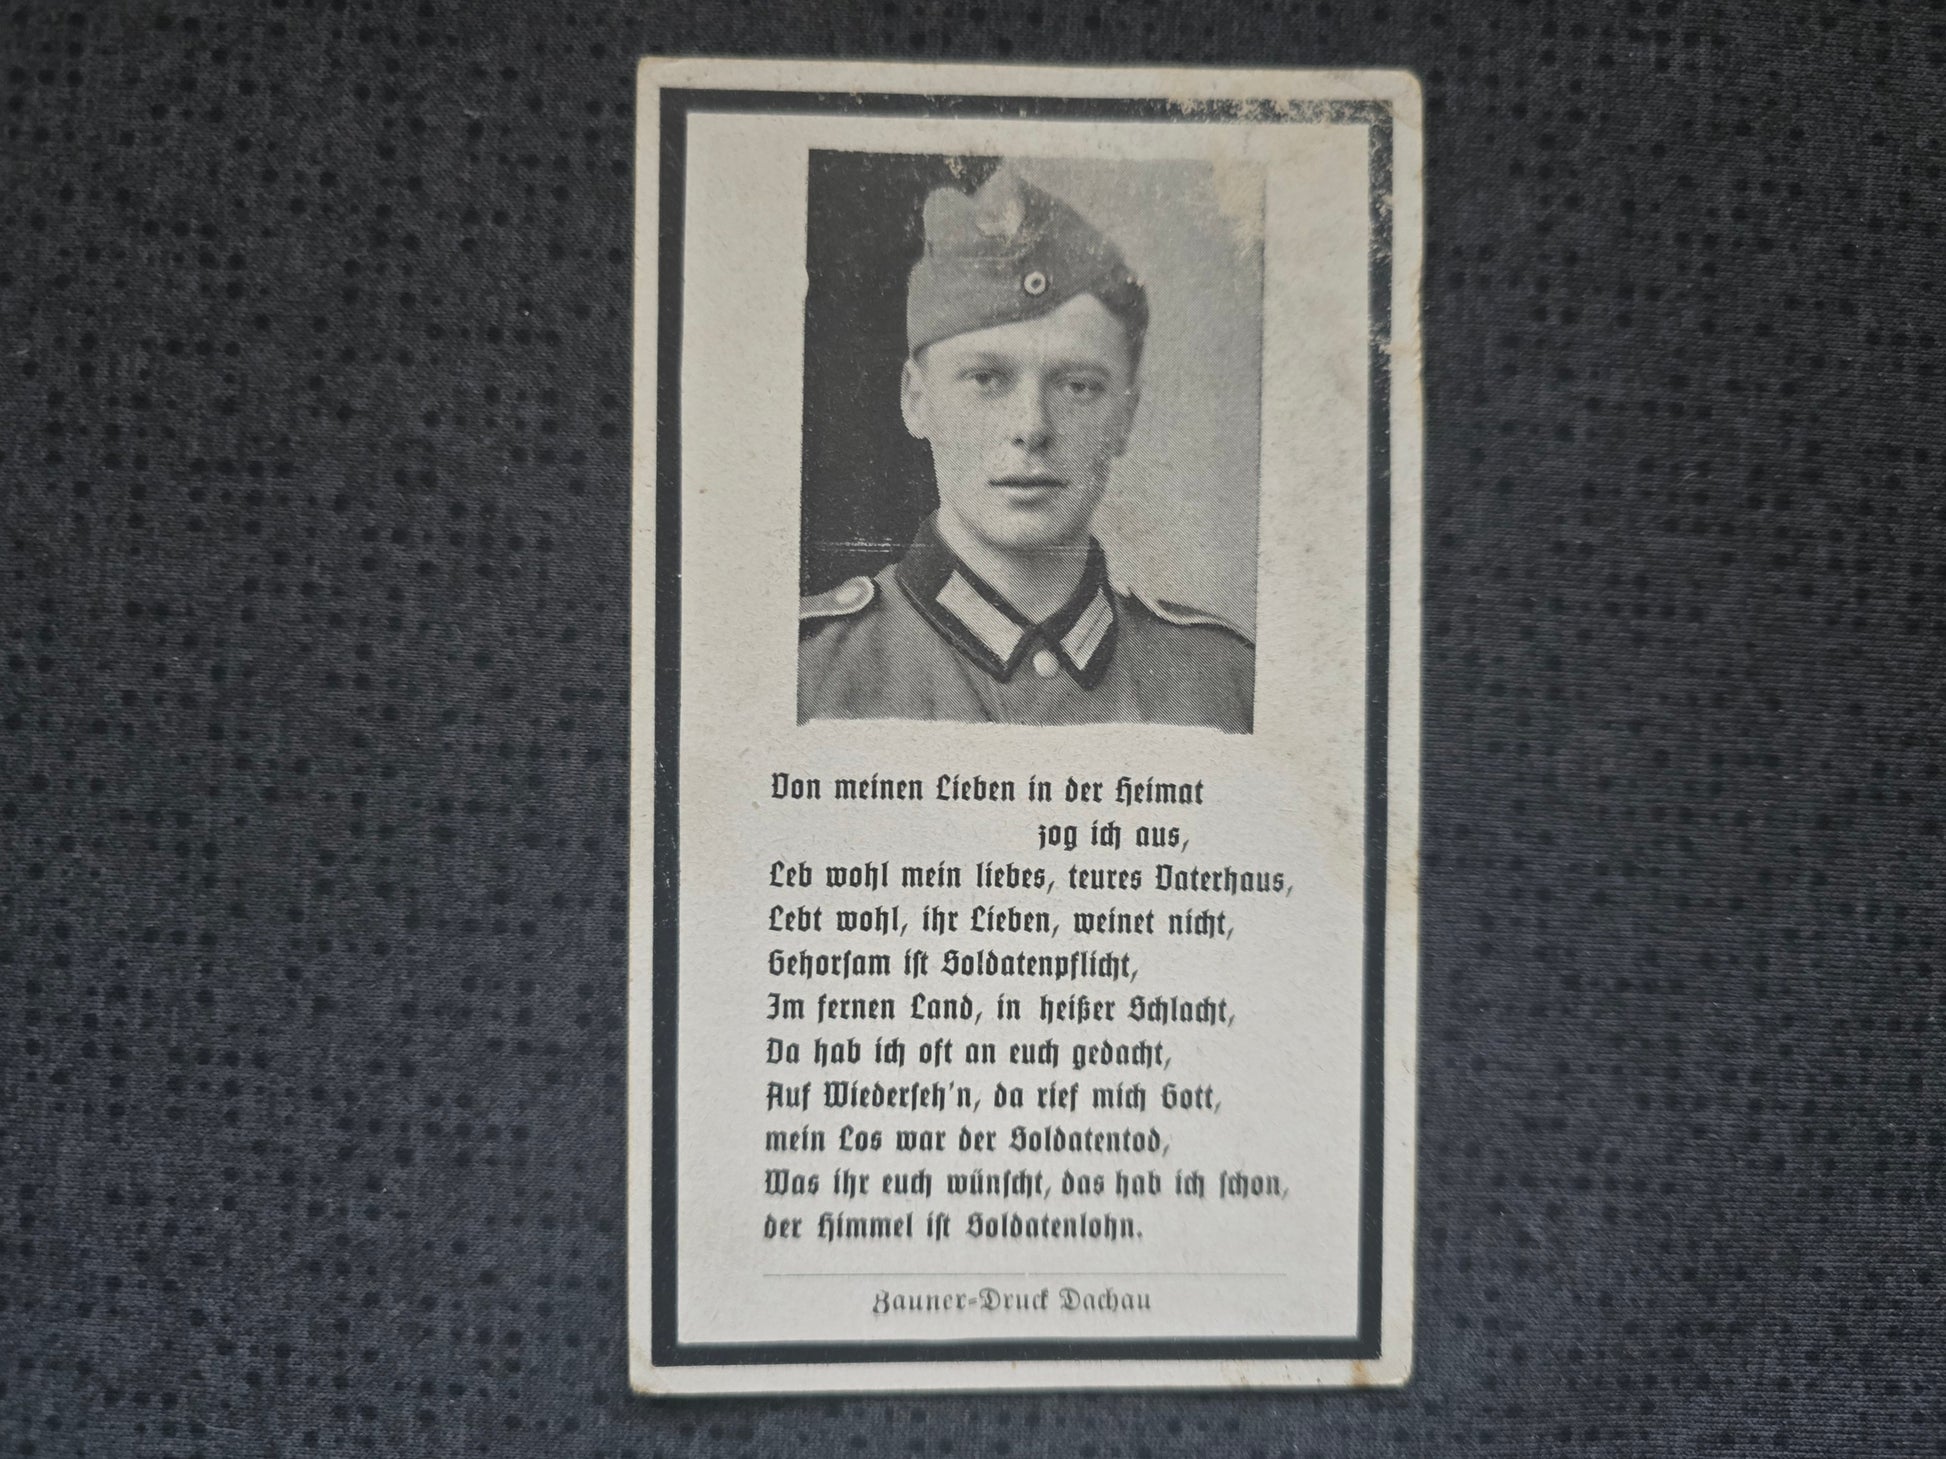 Von meinen Lieben in der Heimat
zog ich aus,
Leb wohl mein liebes, teures Vaterhaus,
Lebt wohl, ihr Lieben, weinet nicht,
Gehorsam ist Soldatenpflicht,
Im fernen Land, in heißer Schlacht,
Da hab ich oft an euch gedacht,
Auf Wiederseh'n, da rief mich Gott,
mein Los war der Soldatentod,
Was ihr euch wünscht, das hab ich schon,
der Himmel ist Soldatenlohn.
Zauner-Druck Dachau